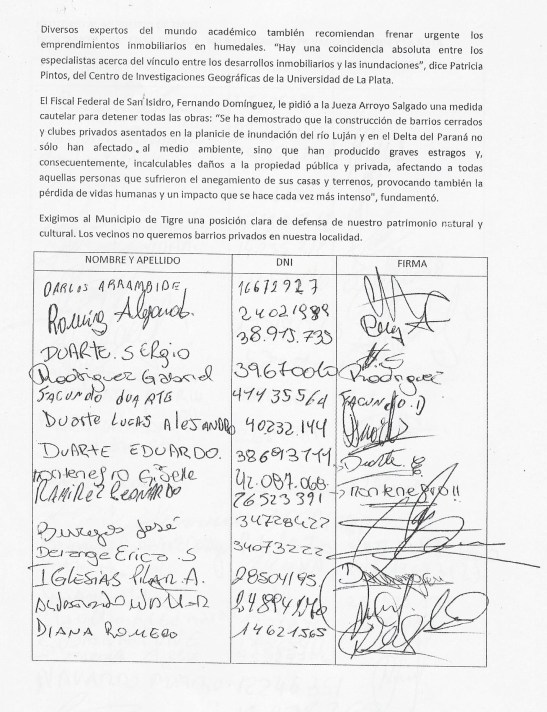 Diversos expertos del mundo académico también recomiendan frenar urgente los
emprendimientos inmobiliarios en humedales. "Hay una coincidencia absoluta entre los
especialistas acerca del vínculo entre los desarrollos inmobiliarios y las inundaciones", dice Patricia
Pintos, del Centro de Investigaciones Geográficas de la Universidad de La Plata.
El Fiscal Federal de San Isidro, Fernando Domínguez, le pidió a la Jueza Arroyo Salgado una medida
cautelar para detener todas las obras: "Se ha demostrado que la construcción de barrios cerrados
y clubes privados asentados en la planicie de inundación del río Luján y en el Delta del Paraná no
sólo han afectado al medio ambiente, sino que han producido graves estragos y,
consecuentemente, incalculables daños a la propiedad pública y privada, afectando a todas
aquellas personas que sufrieron el anegamiento de sus casas y terrenos, provocando también la
pérdida de vidas humanas y un impacto que se hace cada vez más intenso", fundamentó.
Exigimos al Municipio de Tigre una posición clara de defensa de nuestro patrimonio natural y
cultural. Los vecinos no queremos barrios privados en nuestra localidad.
NOMBRE Y APELLIDO DNI FIRMA
ARRAMBIDE 16672927
24021989
DUARTE. SERgio 38.975.735
Rodriguez Gabriel 39670060 Rodriguez
FACUNDO DUARTE 41435564 FACUNDO.D
Duarte LUCAS 40232.144
DUARTE EDUARDO. Duarte E
Montenegro Giselle 42.087.068 Montenegro!!
RAMIREZ LEONARDO 26523391
Burgos José 34728427
Erica S 34073222
IGLESIAS PILAR. A. 28504195
DIANA ROMERO 14621565